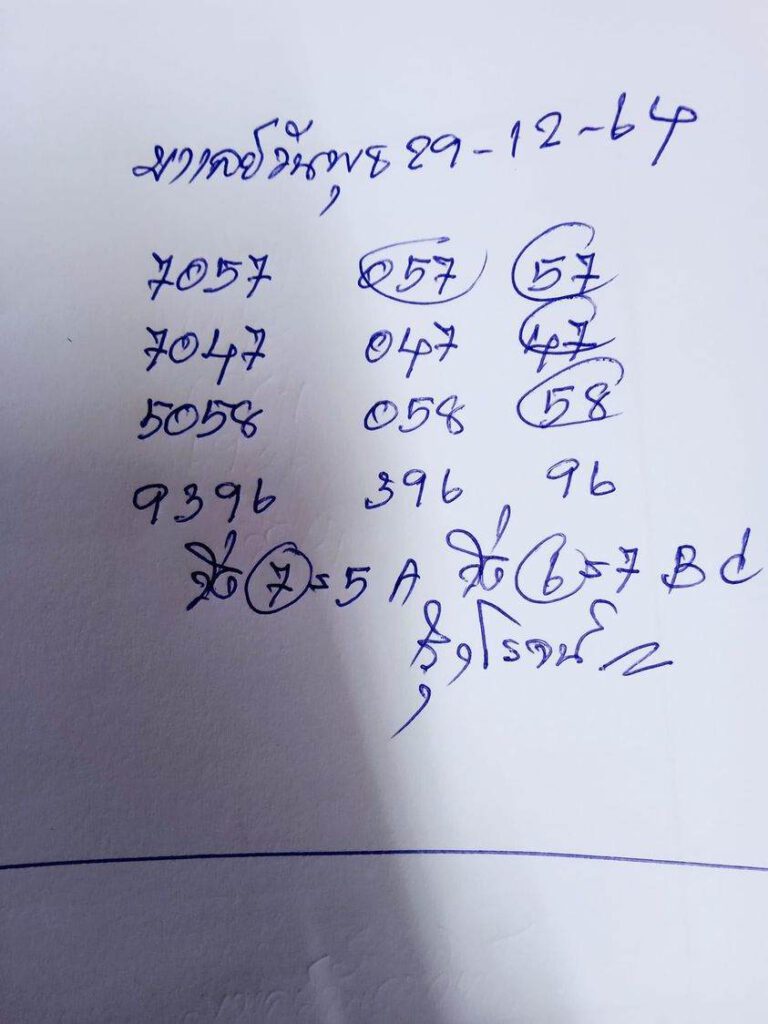 มาเลย์วันพุธ 29-12-64
7057 057 57
7047 047 47
5058 058 58
9396 396 96
วิ่ง 7=5 A วิ่ง 6=7 B C
โรจน์